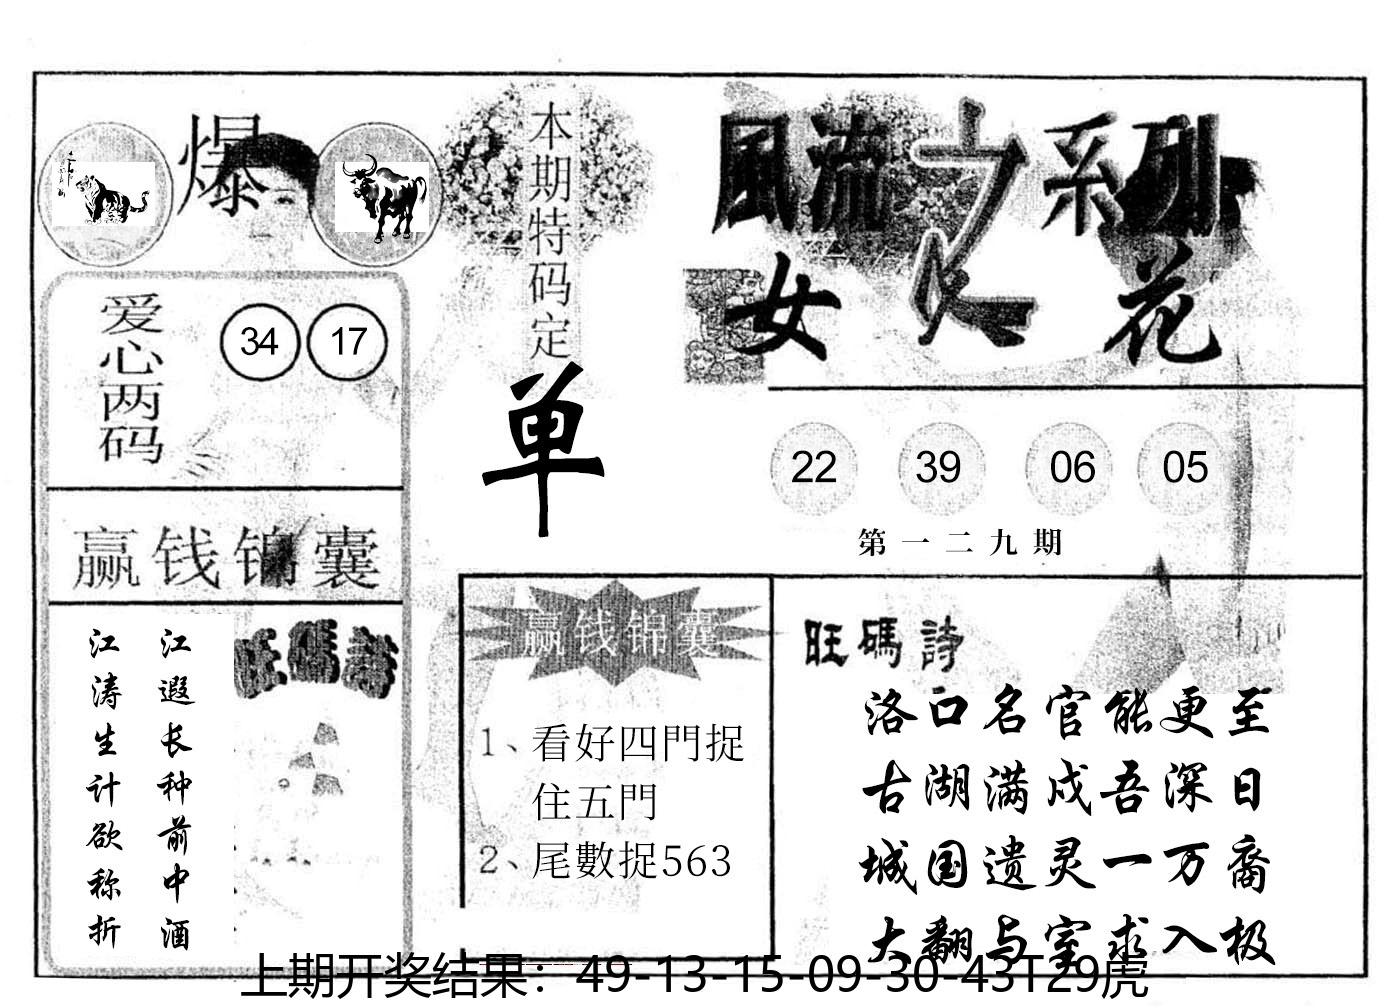 爆
本期特码定
单
風流之系列
女人花
爱心两码
34 17
22 39 06 05
第一二九期
赢钱锦囊
江遐长种前中酒
江涛生计欲称折
旺碼詩
赢钱锦囊
1、看好四門捉
住五門
2、尾數捉563
旺碼詩
洛口名官能更至
古湖满戍吾深日
城国遗灵一万裔
大翻与室求入极
上期开奖结果：49-13-15-09-30-43T29虎